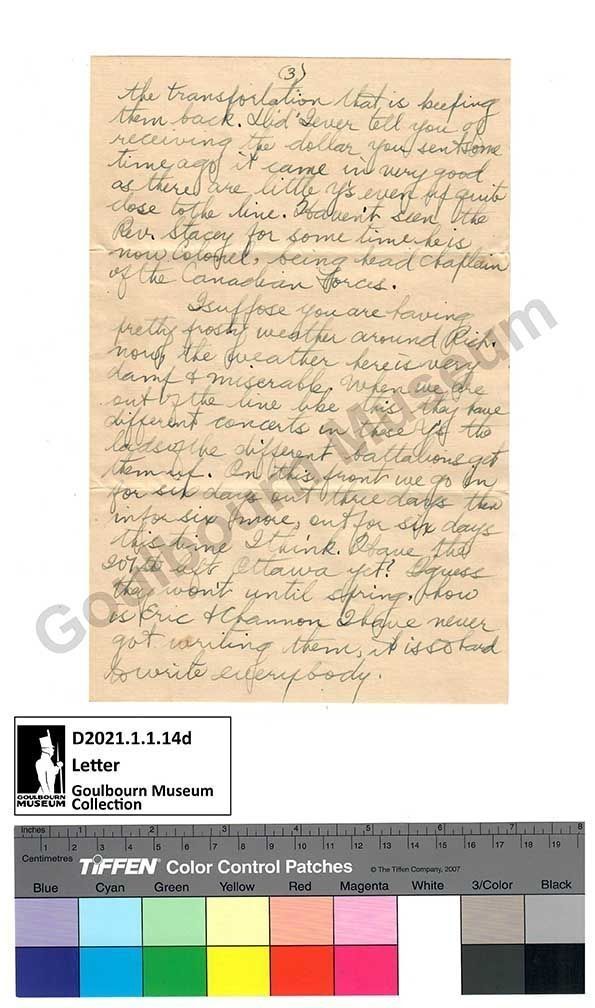 (3)
the transportation that is keeping
them back. Did I ever tell you of
receiving the dollar you sent some
time ago it came in very good
as there are little Y's even up quite
close to the line. Haven't seen the
Rev. Stacey for some time he is
now Colonel, being head chaplain
of the Canadian Forces.
I suppose you are having
pretty frosty weather around Rich.
now, the weather here is very
damp & miserable. When we are
out of the line like this they have
different concerts in these Y's the
lads of the different battalions get
them up. On this front we go in
for six days out three days then
in for six more, out for six days
this time I think. Have the
207th left Ottawa yet? I guess
they won't until spring. How
is Eric & Channon I have never
got writing them, it is so hard
to write everybody.
Goulbourn Museum
D2021.1.1.14d
Letter
Goulbourn Museum
Collection
GOULBOURN
MUSEUM
Inches 1 2 3 4 5 6 7 8
Centimetres 1 2 3 4 5 6 7 8 9 10 11 12 13 14 15 16 17 18 19
TIFFEN Color Control Patches © The Tiffen Company, 2007
Blue Cyan Green Yellow Red Magenta White 3/Color Black